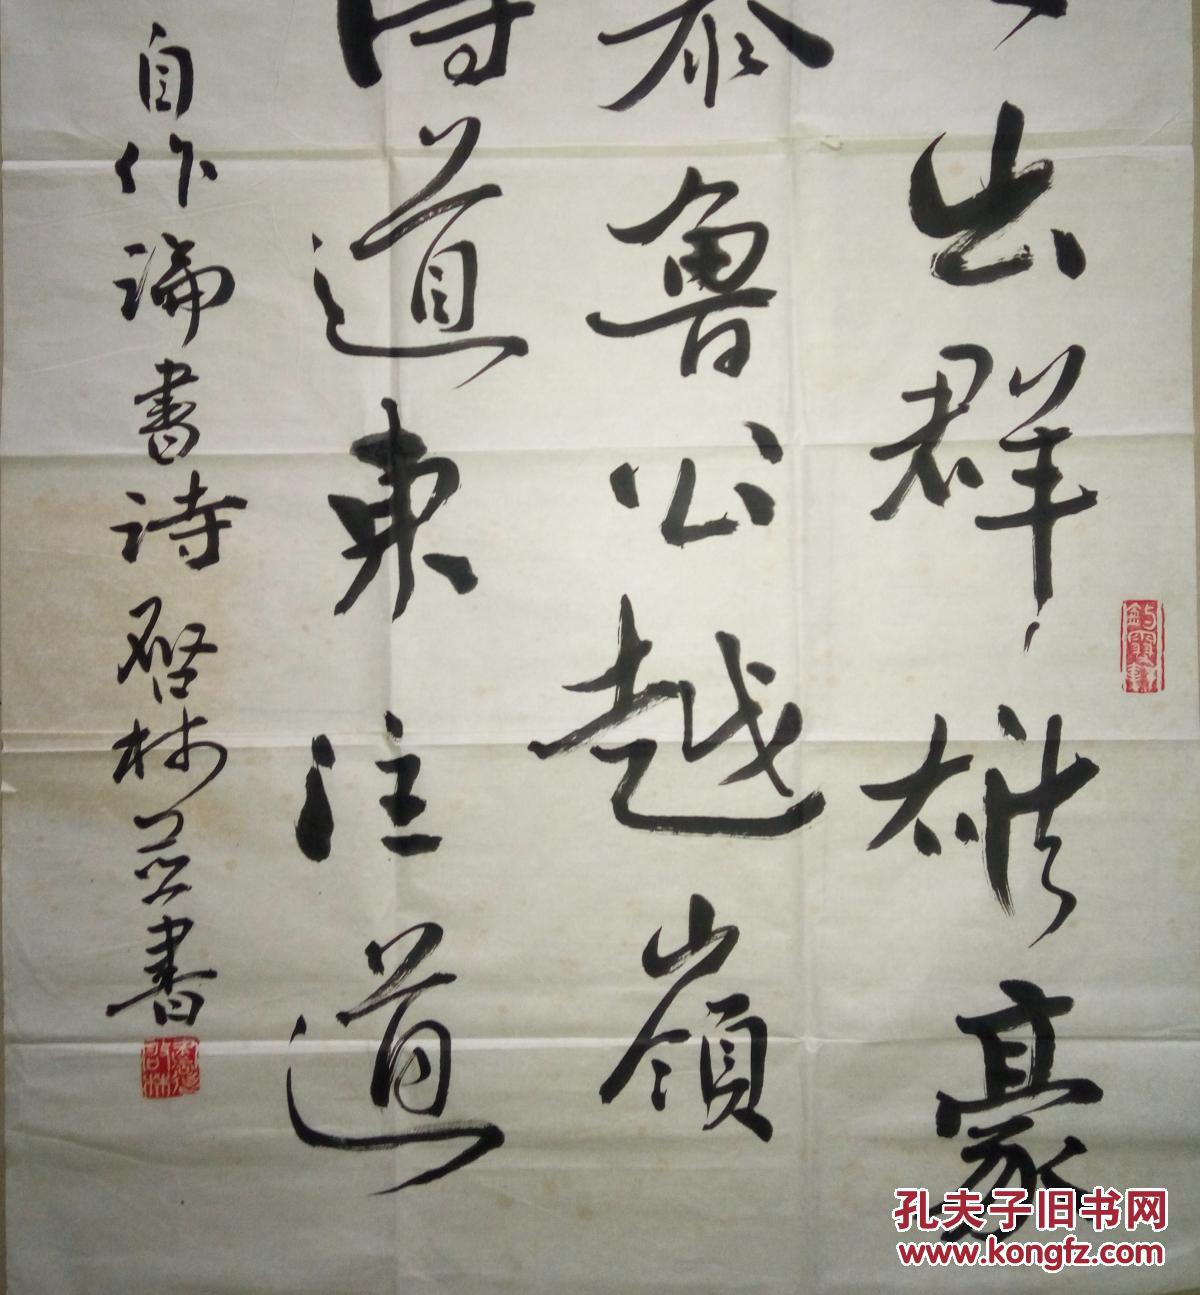 出群雄豪
泰魯公越嶺
得道東注道
自作論書詩啓林並書
孔夫子旧书网
www.kongfz.com